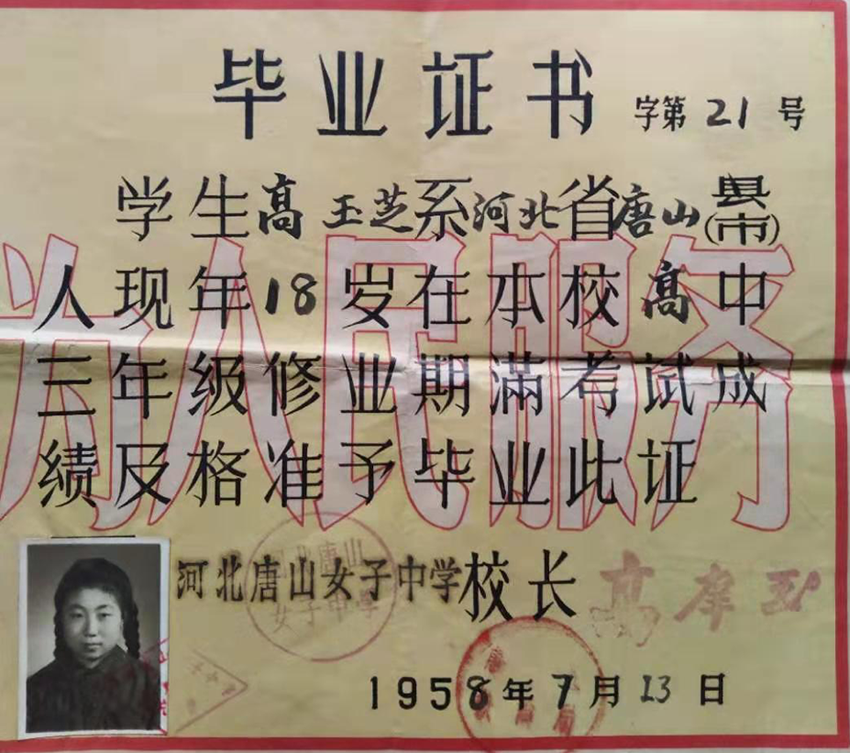 毕业证书
字第21号
学生高玉芝系河北省唐山县(市)
人现年18岁在本校高中
三年级修业期满考试成
绩及格准予毕业此证
为人民服务
河北唐山女子中学校长
河北唐山
女子中学
1958年7月13日